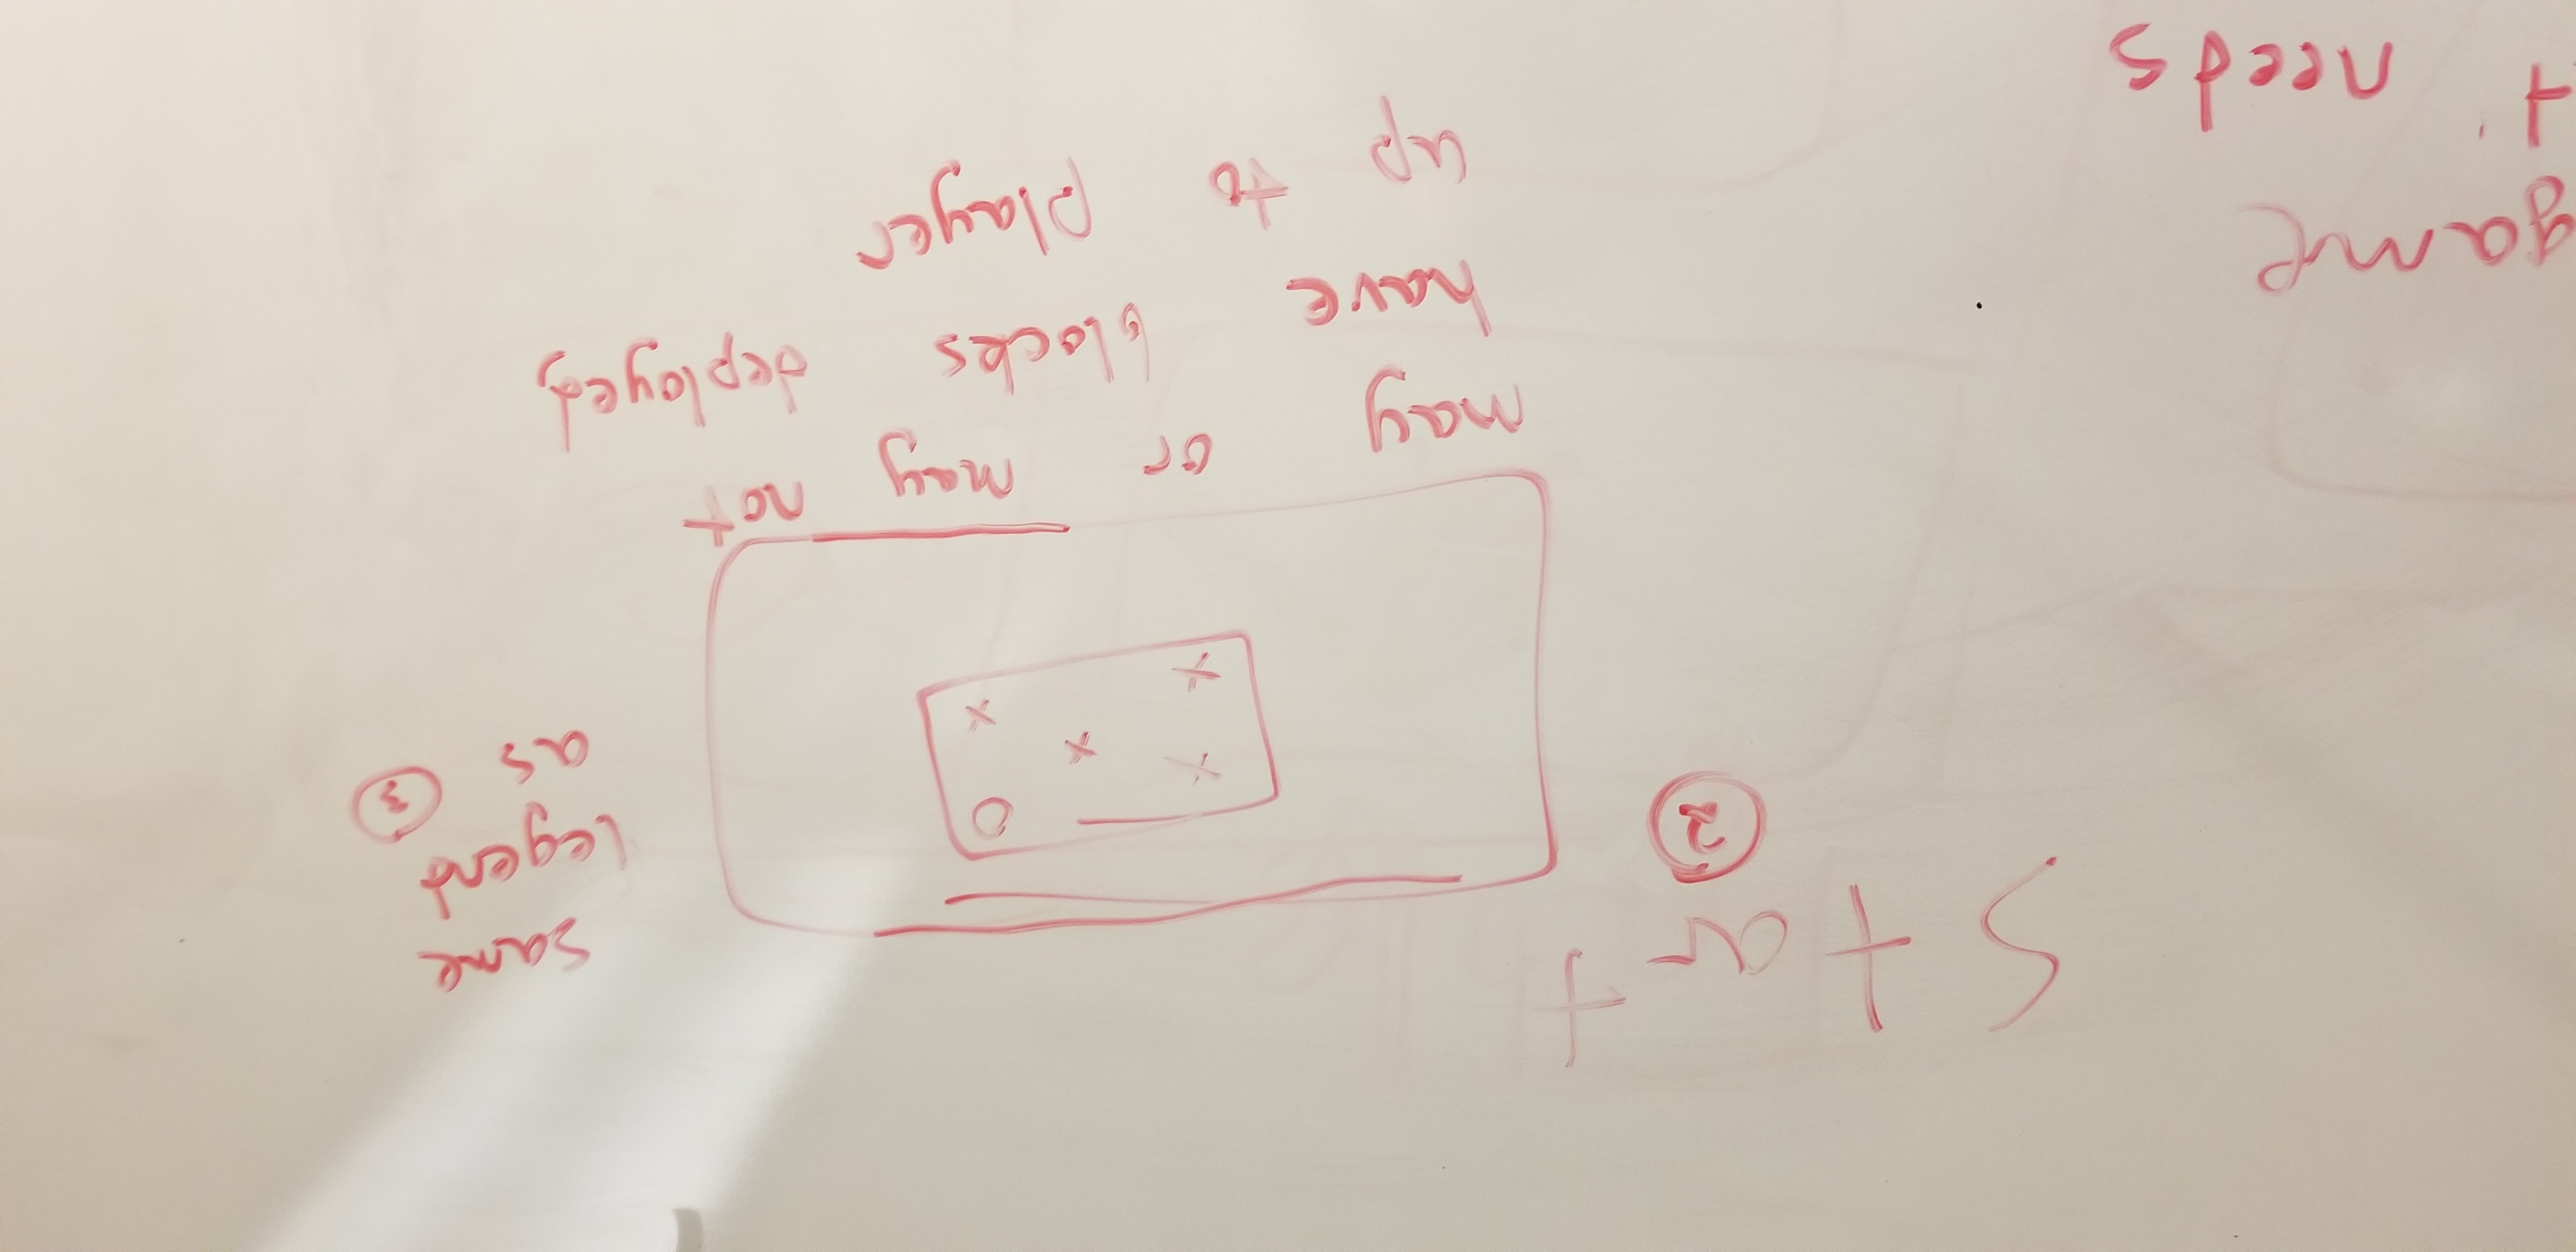 Start
2
O
x
x
x
x
same
legend
as 3
may or may not
have blocks deployed,
up to player
game
t' needs